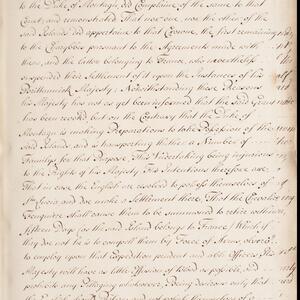 to the Duke of Montagu, did Complaine of the same to that
Court, and remonstrated That nor one was the other of the
said Islands did appertaine to that Crowne, the first remaining
to the Charibbes pursuant to the Agreements made with
them, and the latter belonging to France, who nevertheless
suspended their Settlement of it upon the Instances of his
Brittannick Majesty; Notwithstanding these Reasons
his Majesty has not as yet been informed that the said Grant
has been revoked but on the Contrary that the Duke of
Montagu is making Preparations to take Possession of the
said Islands, and is transporting thither a Number of
Familys for that Purpose. This Undertaking being injurious
to the Rights of his Majesty His Intentions therefore are
That in case the English are resolved to possess themselves of
St. Lucia and doe make a Settlement there That the Chevalier
Feuquiere shall cause them to be summoned to retire within
fifteen Days (as the said Island belongs to France) Which if
they doe not he is to compell them by Force of Armes
to employ upon that Expedition prudent and able Officers His
Majesty will have as little Effusion of blood as possible, and
noe any Pillaging whatsoever, Being desirous only that